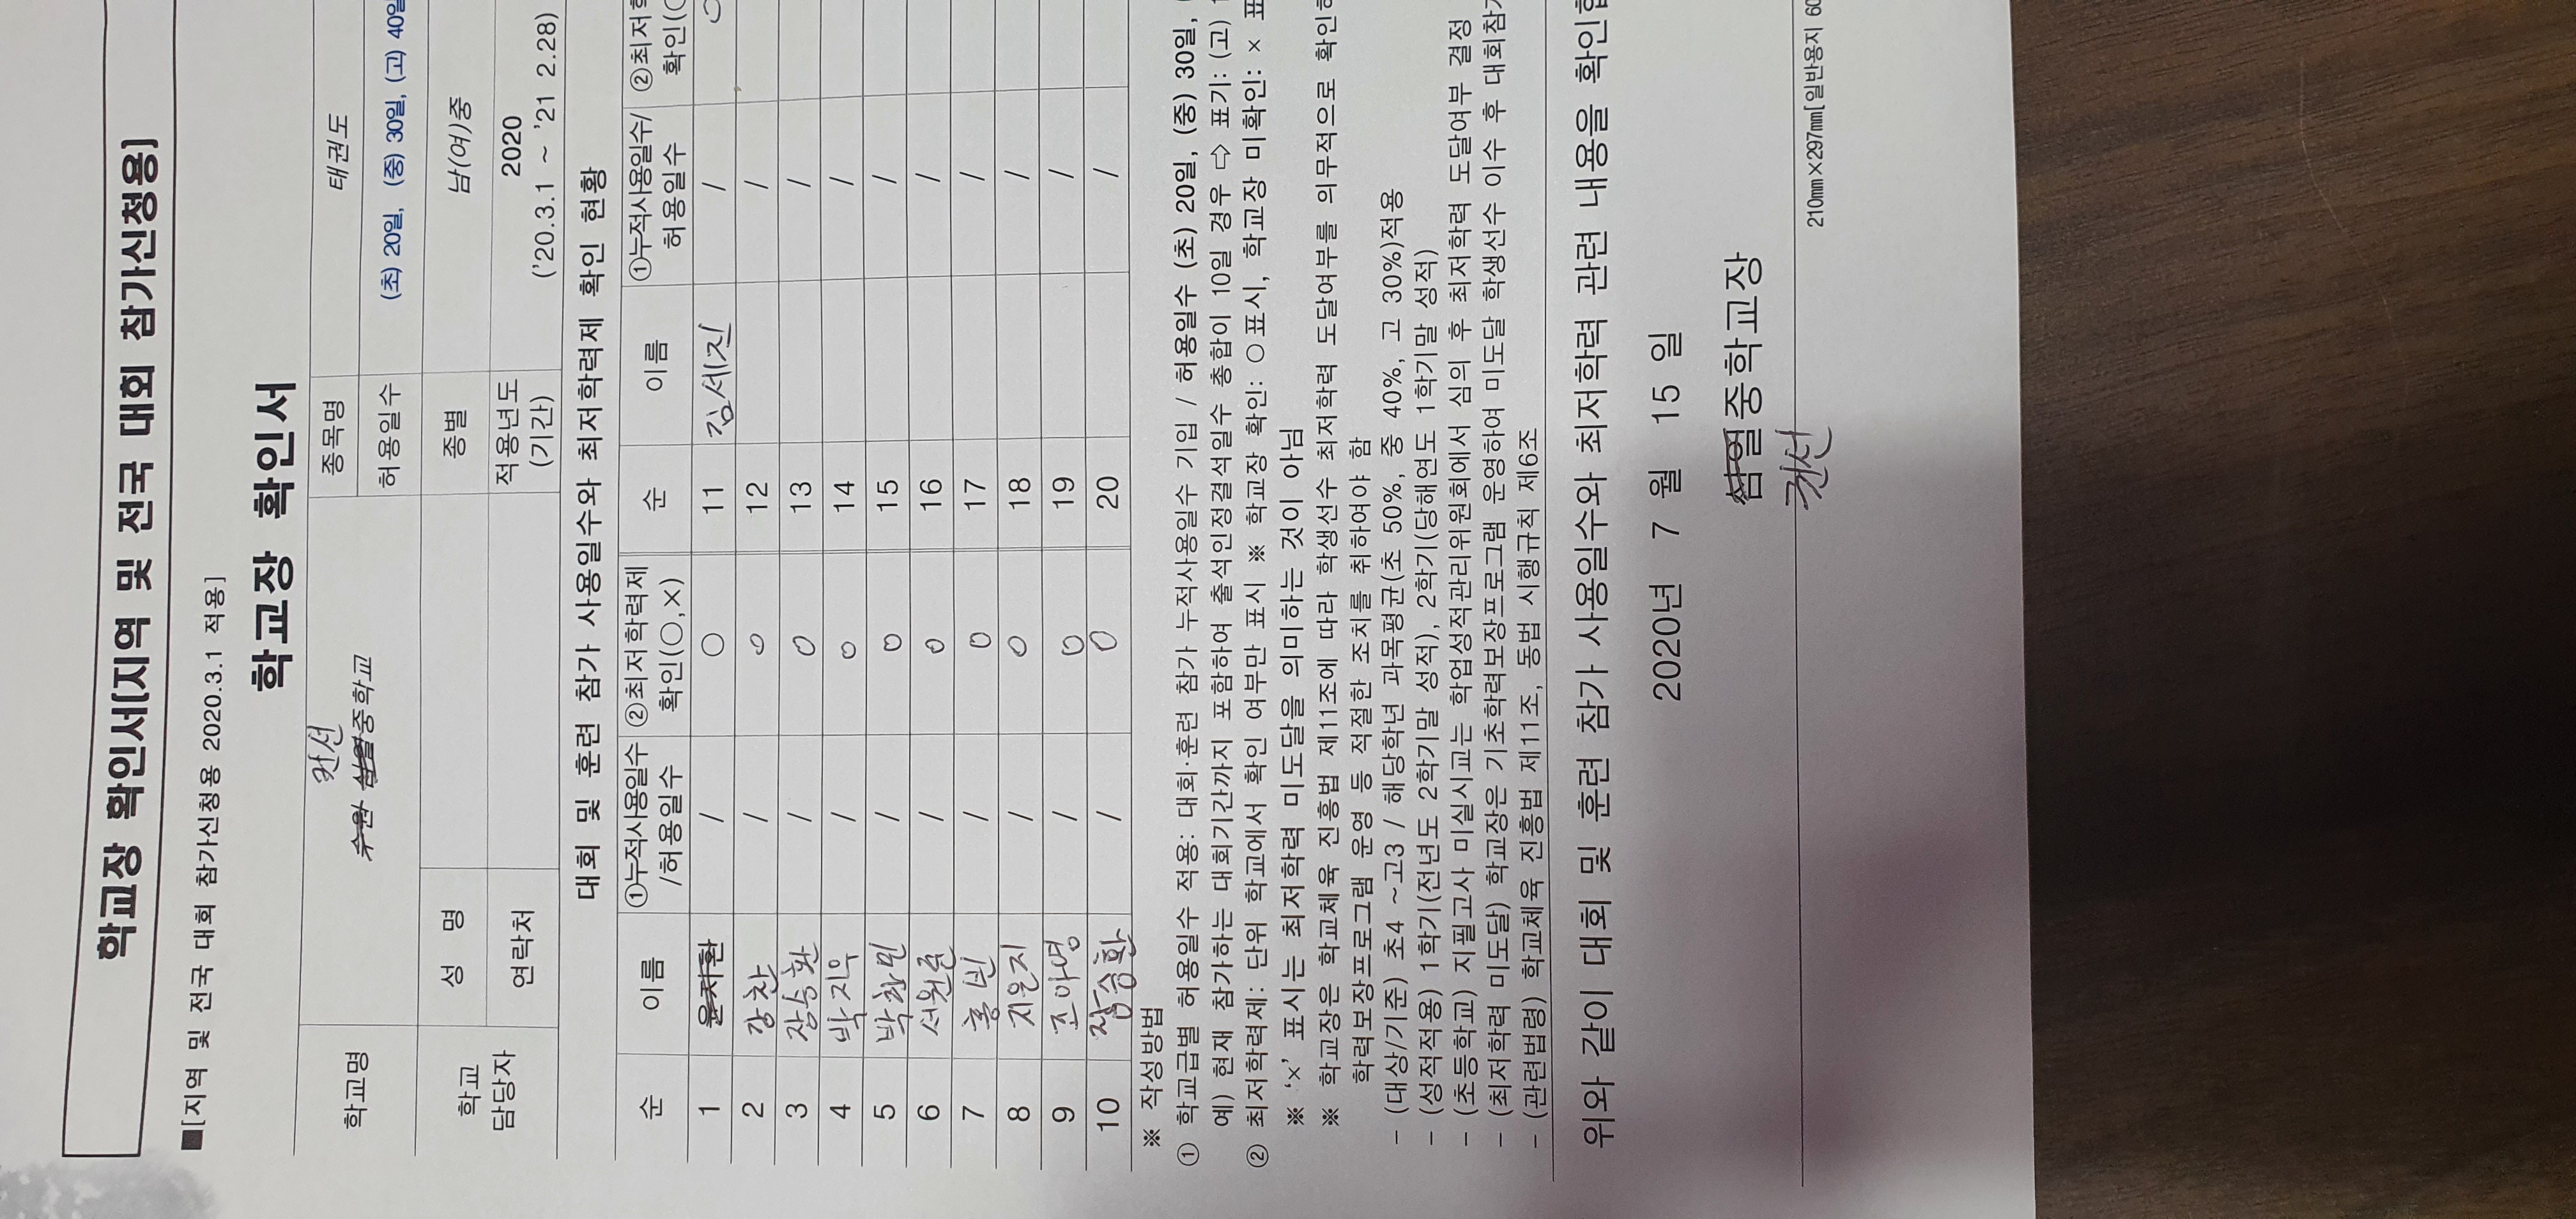 학교장 확인서(지역 및 전국 대회 참가신청용)
■[지역 및 전국 대회 참가신청용 2020.3.1 적용]
학교장 확인서
학교명 권선 중학교 종목명 태권도
허용일수 (초) 20일, (중) 30일, (고) 40일
학교 담당자 성 명 종별 남(여)중
연락처 적용년도 (기간) 2020 ('20.3.1 ~ '21 2.28)
대회 및 훈련 참가 사용일수와 최저학력제 확인 현황
순 이름 ①누적사용일수/허용일수 ②최저학력제 확인(○,×) 순 이름 ①누적사용일수/허용일수 ②최저학 확인(○
1 윤지환 / ○ 11 김세진 / ○
2 강찬 / ○ 12 /
3 장승환 / ○ 13 /
4 박지우 / ○ 14 /
5 박창민 / ○ 15 /
6 서원준 / ○ 16 /
7 홍빈 / ○ 17 /
8 지윤지 / ○ 18 /
9 조아영 / ○ 19 /
10 승환 / ○ 20 /
※ 작성방법
① 학교급별 허용일수 적용: 대회·훈련 참가 누적사용일수 기입 / 허용일수 (초) 20일, (중) 30일,
예) 현재 참가하는 대회기간까지 포함하여 출석인정결석일수 총합이 10일 경우 ⇨ 표기: (고)
② 최저학력제: 단위 학교에서 확인 여부만 표시 ※ 학교장 확인: ○표시, 학교장 미확인: × 표
※ '×' 표시는 최저학력 미도달을 의미하는 것이 아님
※ 학교장은 학교체육 진흥법 제11조에 따라 학생선수 최저학력 도달여부를 의무적으로 확인하
학력보장프로그램 운영 등 적절한 조치를 취하여야 함
- (대상/기준) 초4 ~고3 / 해당학년 과목평균(초 50%, 중 40%, 고 30%)적용
- (성적적용) 1학기(전년도 2학기말 성적), 2학기(당해연도 1학기말 성적)
- (초등학교) 지필고사 미실시교는 학업성적관리위원회에서 심의 후 최저학력 도달여부 결정
- (최저학력 미도달) 학교장은 기초학력보장프로그램 운영하여 미도달 학생선수 이수 후 대회참가
- (관련법령) 학교체육 진흥법 제11조, 동법 시행규칙 제6조
위와 같이 대회 및 훈련 참가 사용일수와 최저학력 관련 내용을 확인합
2020년 7 월 15 일
삼일중학교장
권선
210㎜×297㎜[일반용지 60